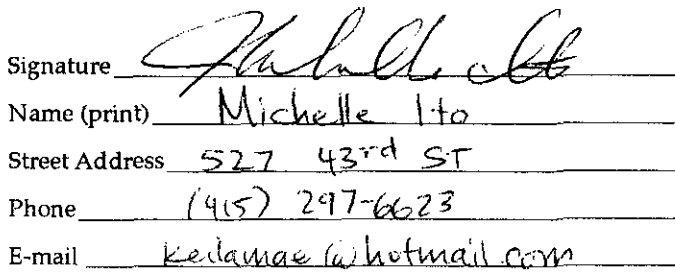 Signature Michelle Ito
Name (print) Michelle Ito
Street Address 527 43rd ST
Phone (415) 297-6623
E-mail keilamae@hotmail.com